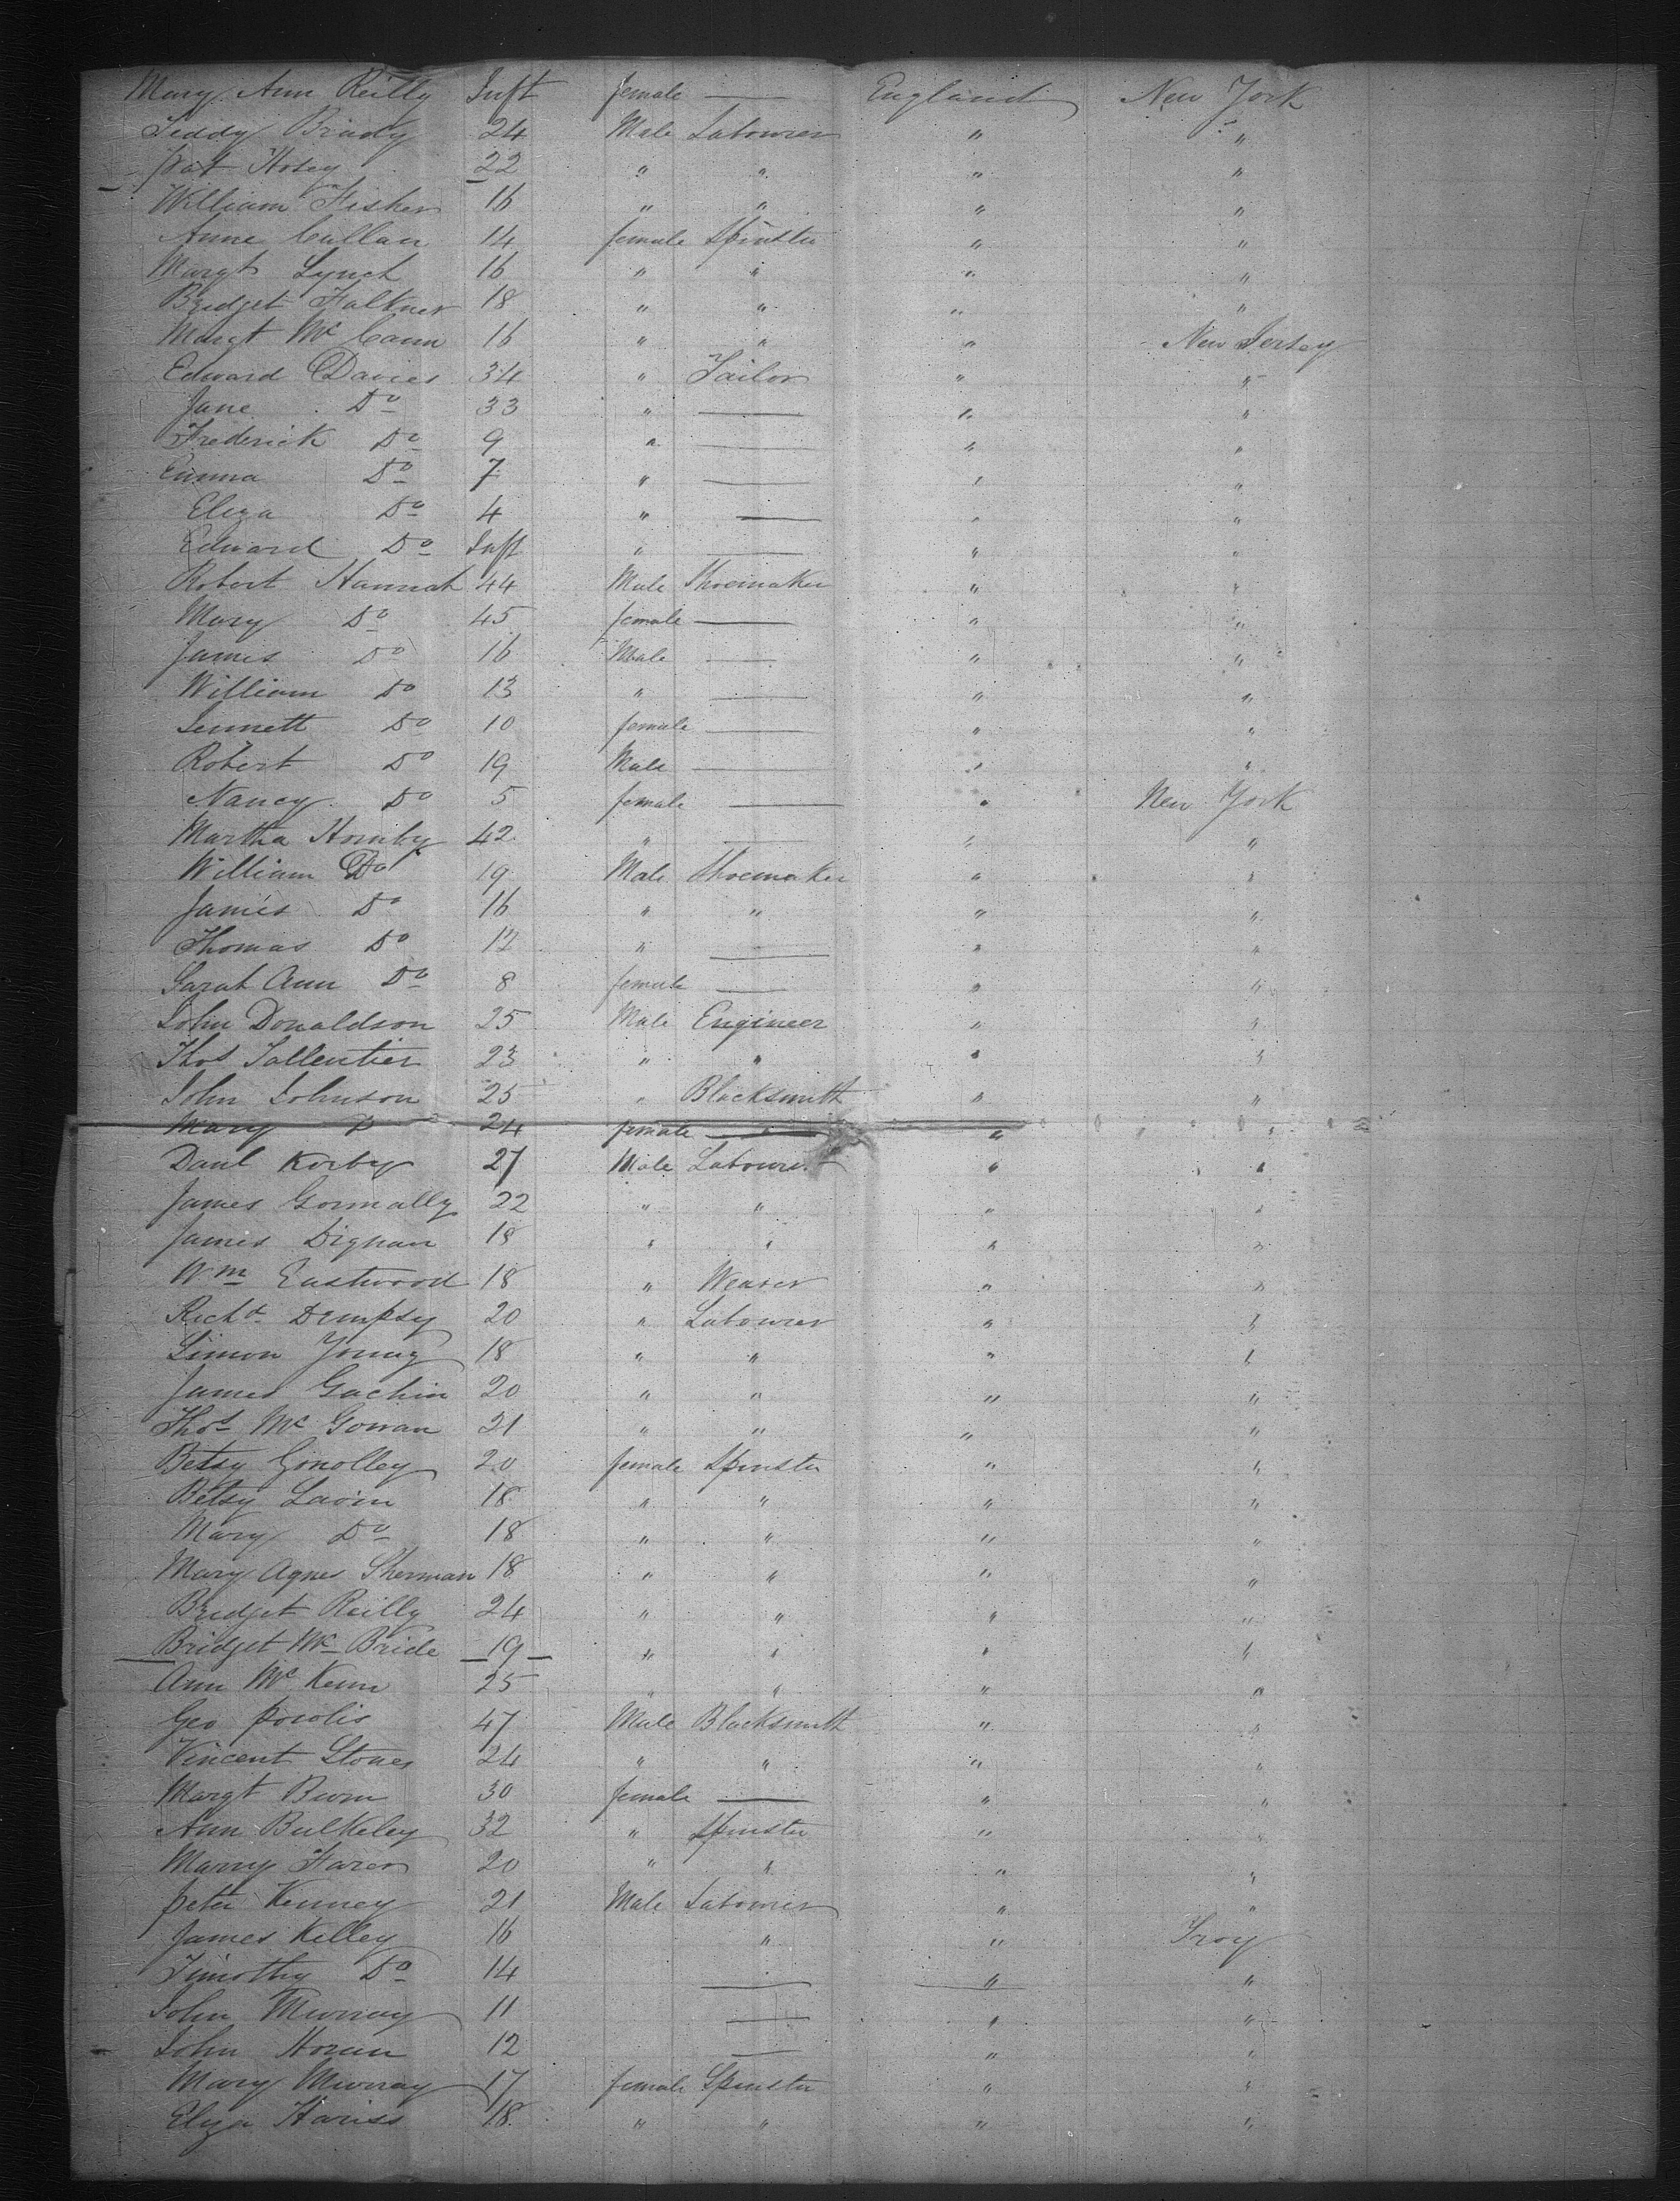 Mary Ann Reilly Inft female — England New York
Teddy Brady 24 Male Labourer " "
Pat Hosey 22 " " " "
William Fisher 16 " " " "
Anne Cullan 14 female Spinster " "
Margt Lynch 16 " " " "
Bridget Falkner 18 " " " "
Margt Mc Cann 16 " " " New Jersey
Edward Davies 34 " Tailor " "
Jane Do 33 " — " "
Frederick Do 9 " — " "
Emma Do 7 " — " "
Eliza Do 4 " — " "
Edward Do Inft " — " "
Robert Hannah 44 Male Shoemaker " "
Mary Do 45 female — " "
James Do 16 Male — " "
William Do 13 " — " "
Jennett Do 10 female — " "
Robert Do 19 Male — " "
Nancy Do 5 female — " New York
Martha Hornby 42 " — " "
William Do 19 Male Shoemaker " "
James Do 16 " " " "
Thomas Do 12 " — " "
Sarah Ann Do 8 female — " "
John Donaldson 25 Male Engineer " "
Thos Tallentier 23 " " " "
John Johnson 25 " Blacksmith " "
Mary D 24 female — " "
Danl Korby 27 Male Labourer " "
James Gormally 22 " " " "
James Dignan 18 " " " "
Wm Eastwood 18 " Weaver " "
Richd Dempsy 20 " Labourer " "
Simon Young 18 " " " "
James Gachin 20 " " " "
Thos Mc Gowan 21 " " " "
Betsy Ginolley 20 female Spinster " "
Betsy Lavin 18 " " " "
Mary Do 18 " " " "
Mary Agnes Sherman 18 " " " "
Bridget Reilly 24 " " " "
Bridget Mc Bride 19 " " " "
Ann Mc Kenn 25 " " " "
Geo Powlis 47 Male Blacksmith " "
Vincent Stones 24 " " " "
Margt Burn 30 female — " "
Ann Bulkeley 32 " Spinster " "
Marry Farer 20 " " " "
Peter Kenney 21 Male Labourer " "
James Kelley 16 " " Troy
Timothy Do 14 — " "
John Murray 11 — " "
John Horan 12 — " "
Mary Murray 17 female Spinster " "
Elyza Hariss 18 " " " "